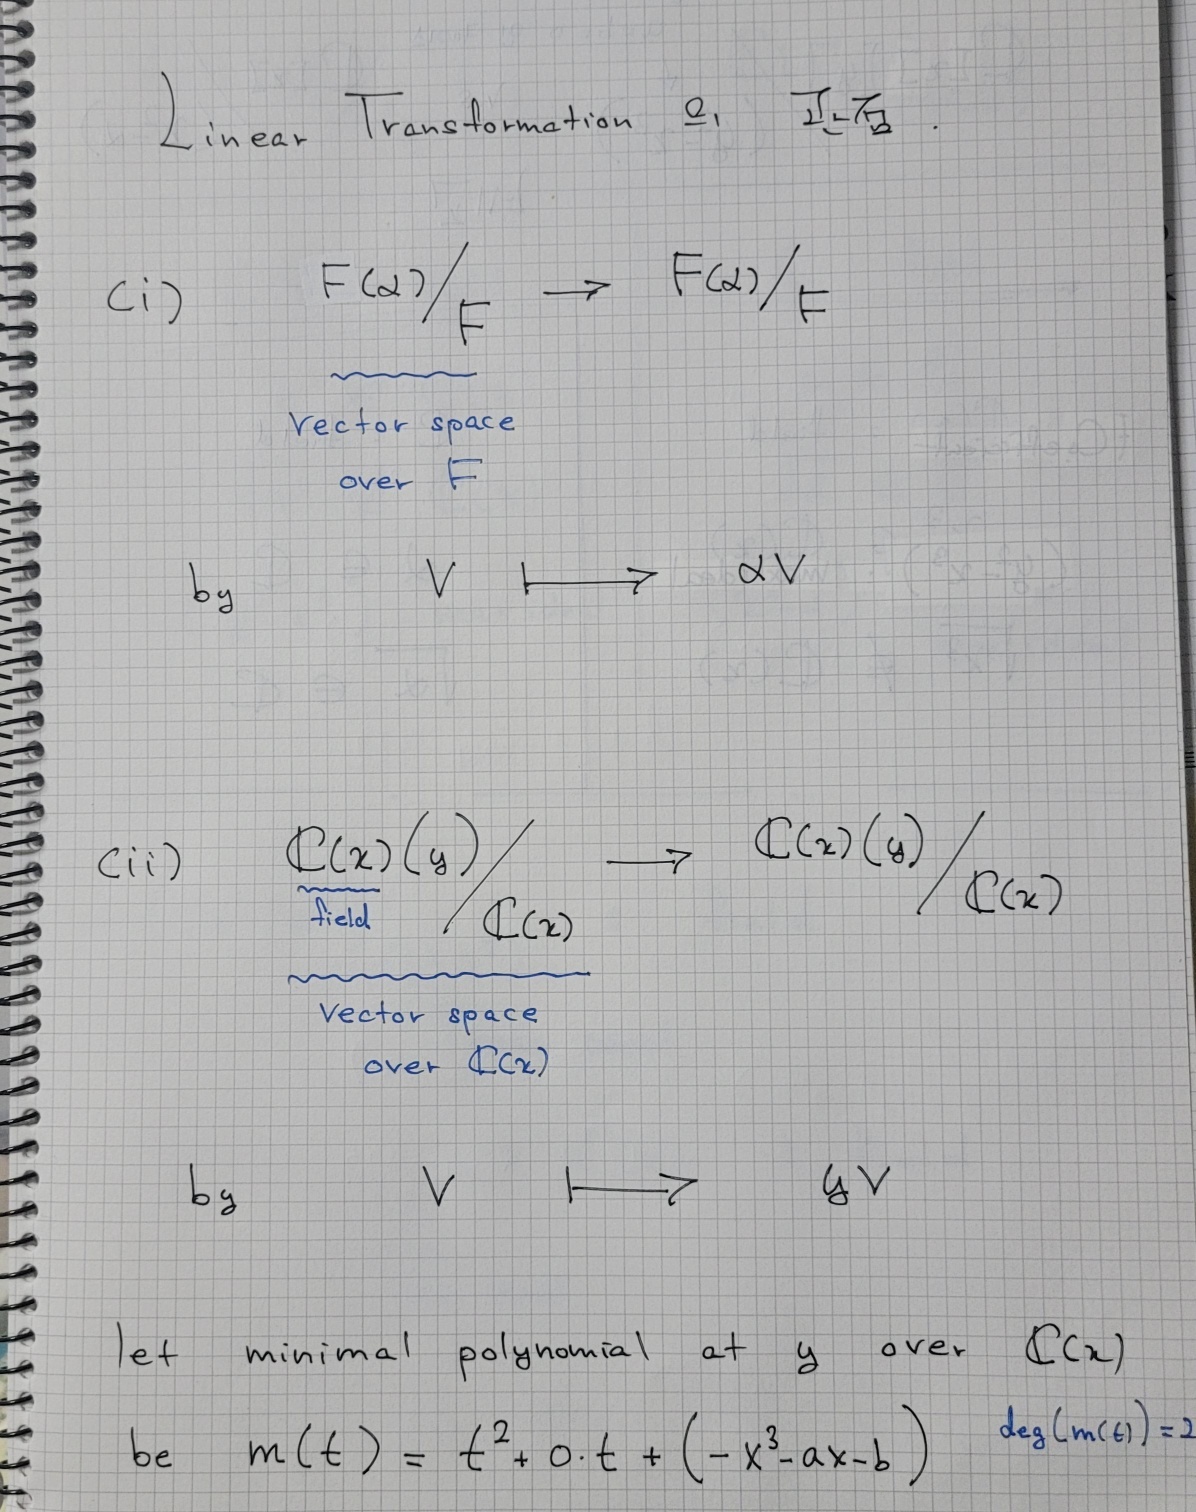 Linear Transformation 의 관점.
(i) F(α)/F → F(α)/F
vector space
over F
by V ⟼ αV
(ii) ℂ(x)(y)/ℂ(x) → ℂ(x)(y)/ℂ(x)
field
vector space
over ℂ(x)
by V ⟼ yV
let minimal polynomial at y over ℂ(x)
be m(t) = t² + 0·t + (-x³-ax-b) deg(m(t)) = 2